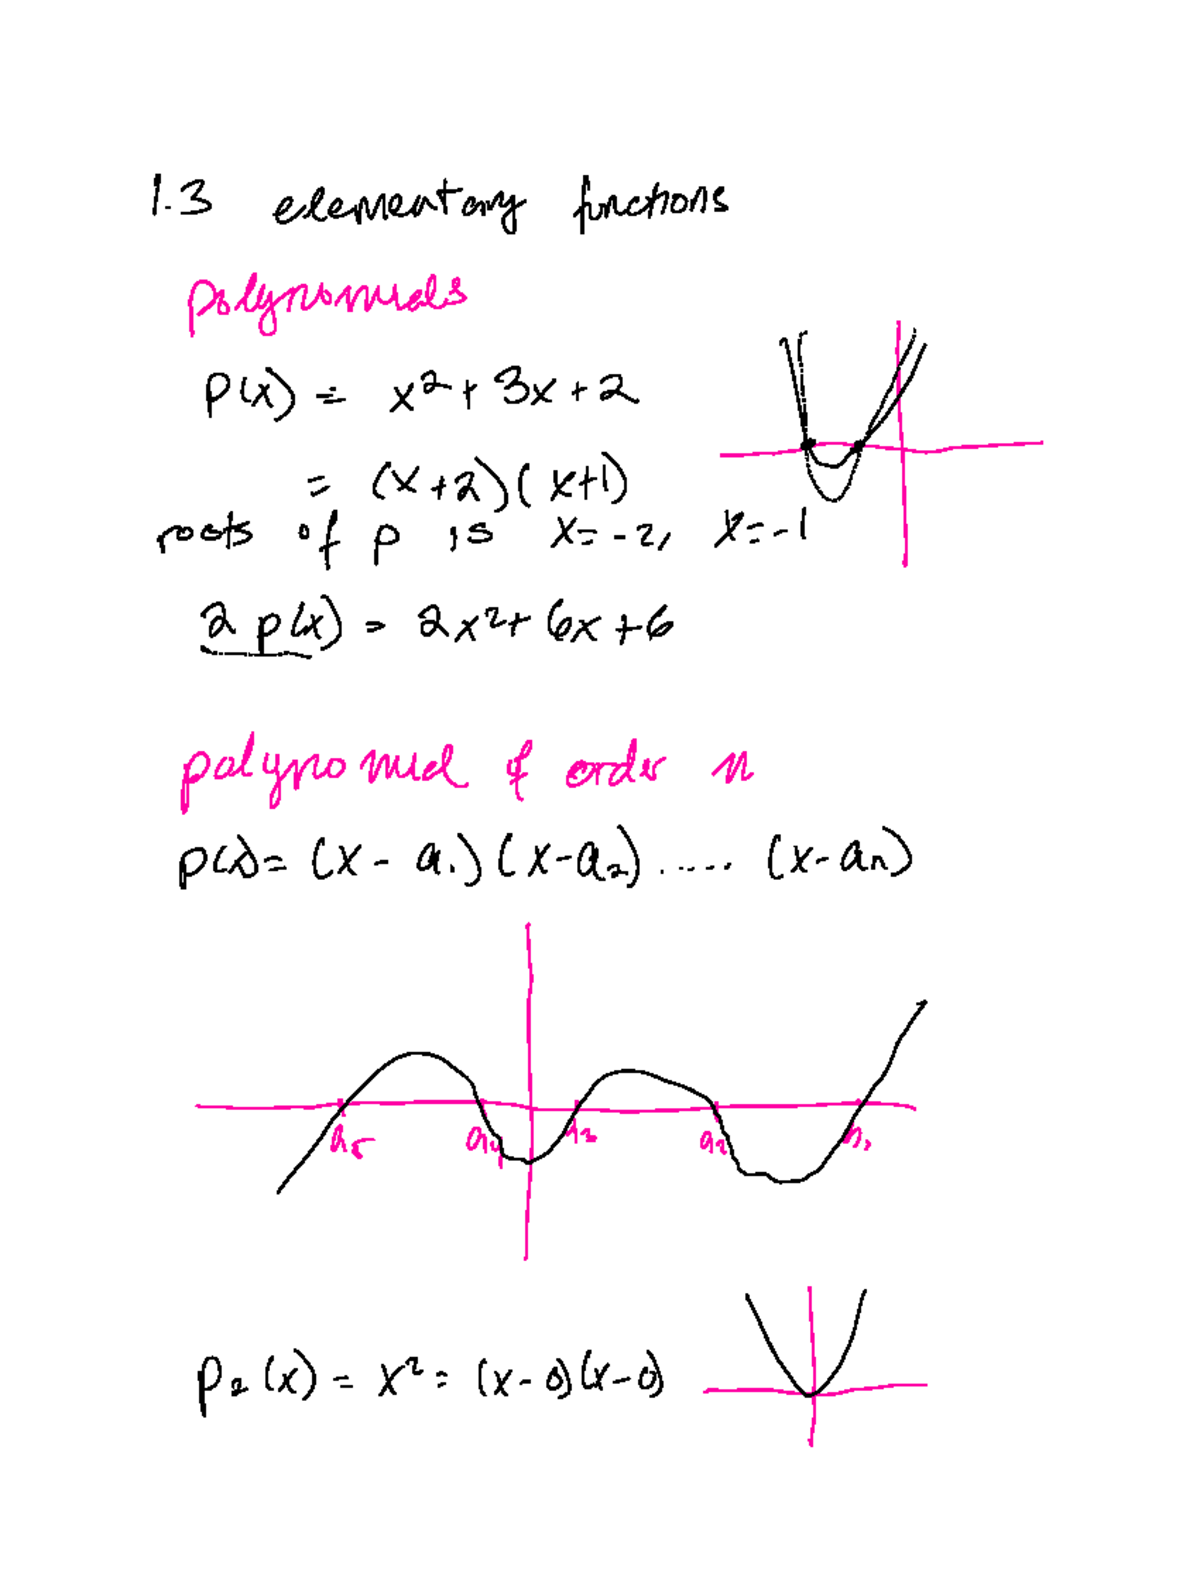 1.3 elementary functions
polynomials
p(x) = x² + 3x + 2
= (x+2)(x+1)
roots of p is x=-2, x=-1
2 p(x) = 2x² + 6x + 6
polynomial of order n
p(x) = (x - a₁)(x-a₂) ..... (x-an)
a₅ a₄ a₃ a₂ a₁
p₂(x) = x² = (x-0)(x-0)